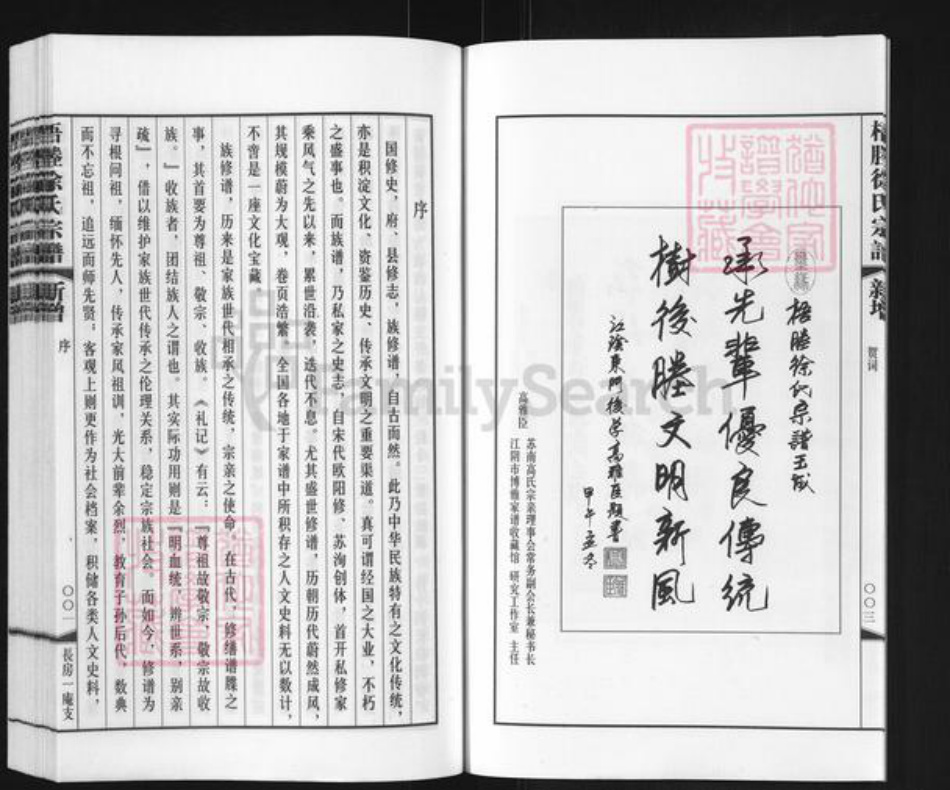 梧塍徐氏宗譜
新增
贺词
〇〇三
梧塍徐氏宗譜玉成
承先輩優良傳統
樹後塍文明新風
江陰東門後学高雅臣題書
甲午孟冬
高雅臣
苏南高氏宗亲理事会常务副会长兼秘书长
江阴市博雅家谱收藏馆 研究工作室 主任
序
国修史，府、县修志，族修谱，自古而然。此乃中华民族特有之文化传统，
亦是积淀文化、资鉴历史、传承文明之重要渠道。真可谓经国之大业，不朽
之盛事也。而族谱，乃私家之史志，自宋代欧阳修、苏洵创体，首开私修家
乘风气之先以来，累世沿袭，迭代不息。尤其盛世修谱，历朝历代蔚然成风，
其规模蔚为大观，卷页浩繁，全国各地于家谱中所积存之人文史料无以数计，
不啻是一座文化宝藏
族修谱，历来是家族世代相承之传统，宗亲之使命。在古代，修缮谱牒之
事，其首要为尊祖、敬宗、收族。《礼记》有云：『尊祖故敬宗，敬宗故收
族。』收族者，团结族人之谓也。其实际功用则是『明血统，辨世系，别亲
疏』，借以维护家族世代传承之伦理关系，稳定宗族社会。而如今，修谱为
寻根问祖，缅怀先人，传承家风祖训，光大前辈余烈，教育子孙后代，数典
而不忘祖，追远而师先贤；客观上则更作为社会档案，积储各类人文史料，
梧塍徐氏宗譜
新增
序
〇〇一
長房一庵支
FamilySearch